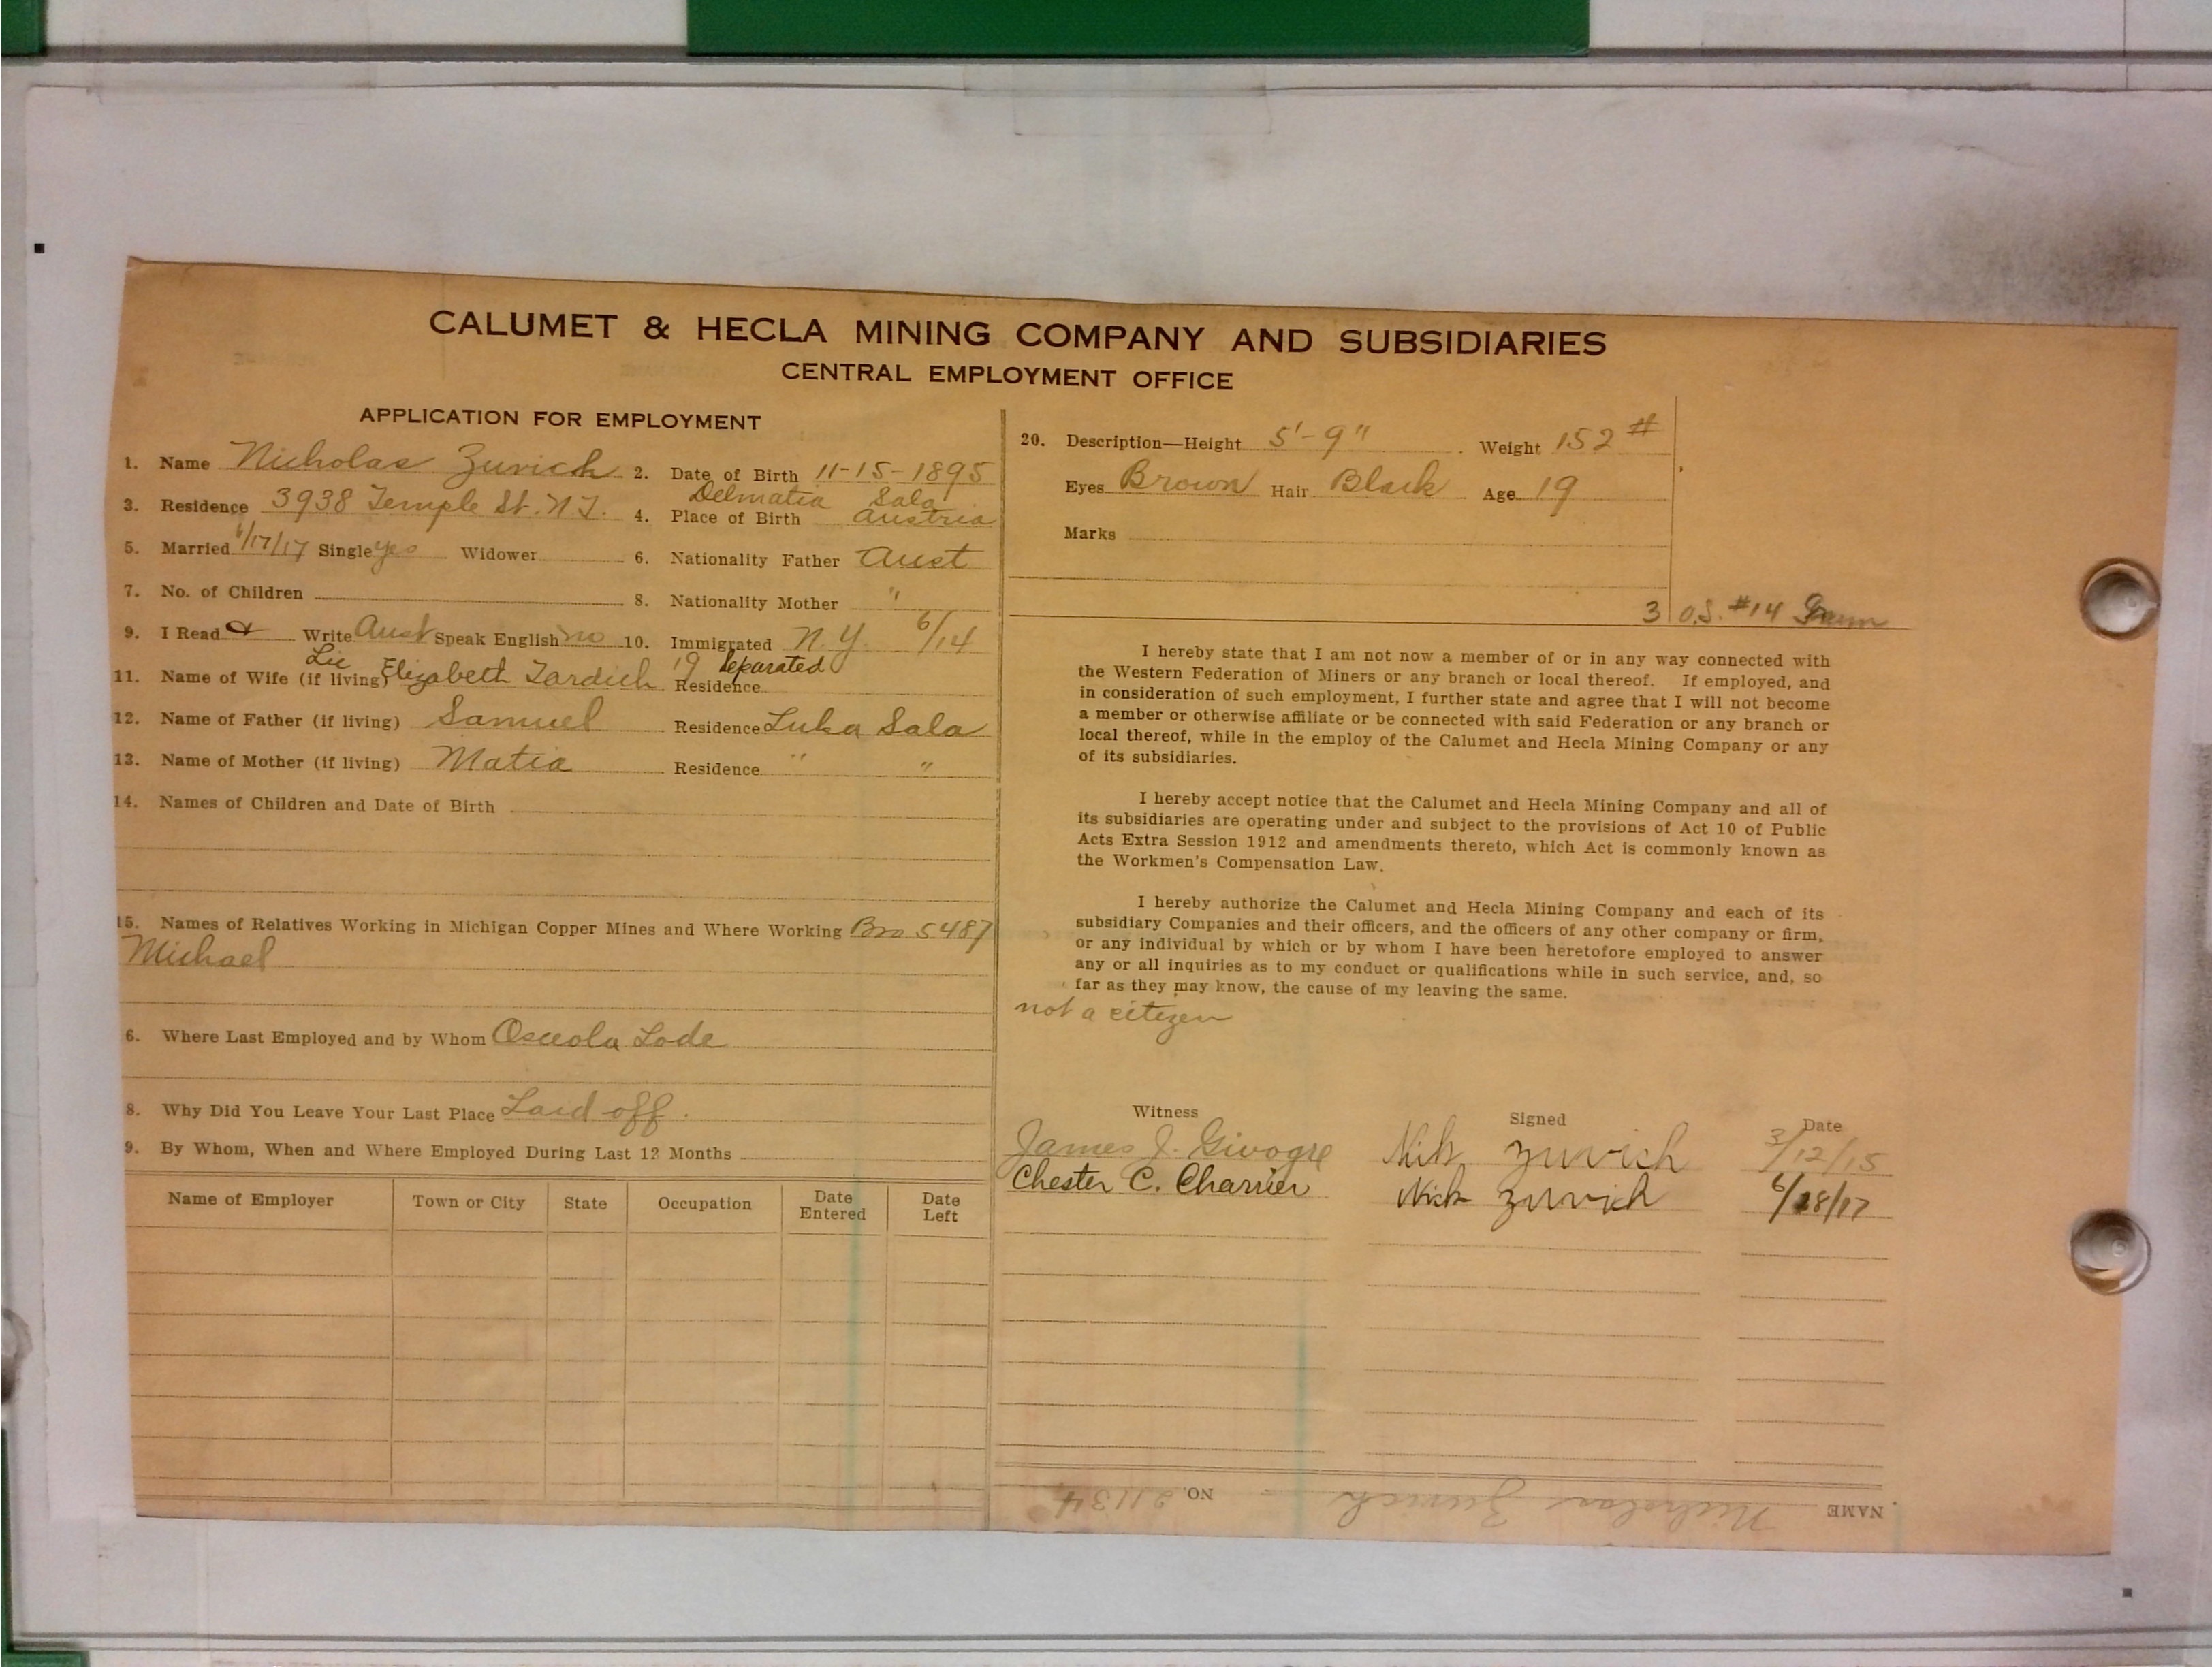 CALUMET & HECLA MINING COMPANY AND SUBSIDIARIES
CENTRAL EMPLOYMENT OFFICE
APPLICATION FOR EMPLOYMENT
1. Name Nicholas Zurich 2. Date of Birth 11-15-1895
Delmatia Sala
3. Residence 3938 Temple St. N.T. 4. Place of Birth Austria
5. Married 6/17/17 Single yes Widower 6. Nationality Father Aust
7. No. of Children 8. Nationality Mother "
9. I Read & Write Aust Speak English no 10. Immigrated N.Y. 6/14
Lic 19 separated
11. Name of Wife (if living) Elizabeth Tardich Residence
12. Name of Father (if living) Samuel Residence Luka Sala
13. Name of Mother (if living) Matia Residence " "
14. Names of Children and Date of Birth
15. Names of Relatives Working in Michigan Copper Mines and Where Working Bro 5487
Michael
6. Where Last Employed and by Whom Osceola Lode
8. Why Did You Leave Your Last Place Laid off.
9. By Whom, When and Where Employed During Last 12 Months
Name of Employer Town or City State Occupation Date Entered Date Left
20. Description—Height 5'-9" Weight 152 #
Eyes Brown Hair Black Age 19
Marks
3 O.S. #14
I hereby state that I am not now a member of or in any way connected with
the Western Federation of Miners or any branch or local thereof. If employed, and
in consideration of such employment, I further state and agree that I will not become
a member or otherwise affiliate or be connected with said Federation or any branch or
local thereof, while in the employ of the Calumet and Hecla Mining Company or any
of its subsidiaries.
I hereby accept notice that the Calumet and Hecla Mining Company and all of
its subsidiaries are operating under and subject to the provisions of Act 10 of Public
Acts Extra Session 1912 and amendments thereto, which Act is commonly known as
the Workmen's Compensation Law.
I hereby authorize the Calumet and Hecla Mining Company and each of its
subsidiary Companies and their officers, and the officers of any other company or firm,
or any individual by which or by whom I have been heretofore employed to answer
any or all inquiries as to my conduct or qualifications while in such service, and, so
far as they may know, the cause of my leaving the same.
not a citizen
Witness Signed Date
James J. Givogre Nick Zurich 3/12/15
Chester C. Charrier Nick Zurich 6/18/17
NAME Nicholas Zurich NO. 21134